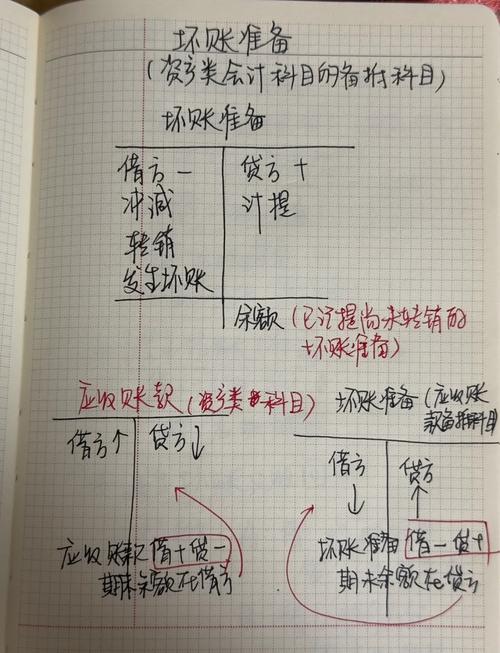 坏账准备
(资产类会计科目的备抵科目)
坏账准备
借方 － 贷方 ＋
冲减 计提
转销
发生坏账
余额 (已计提尚未转销的
坏账准备)
应收账款 (资产类科目)
借方↑ 贷方↓
应收账款 借＋贷－
期末余额在借方
坏账准备 (应收账
款备抵科目
借方 贷方
↓ ↑
坏账准备 借－贷＋
期末余额在贷方